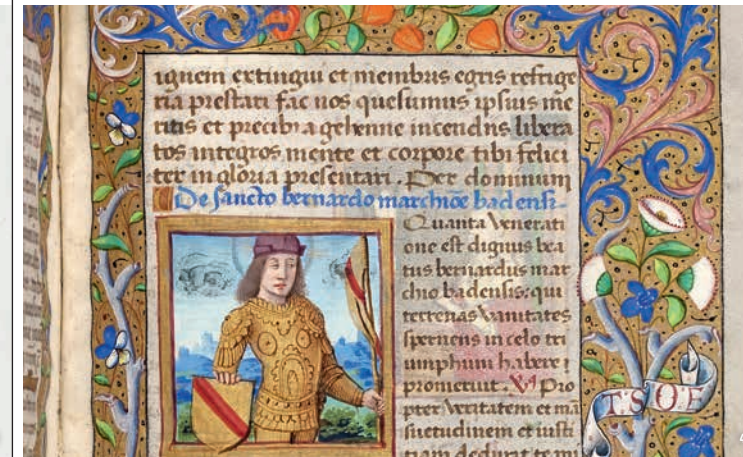 ignem extingui et membris egris refrige
ria prestari fac nos quesumus ipsius me
ritis et precib; a gehenne incendiis libera
tos integros mente et corpore tibi felici
ter in gloria presentari. Per dominum
De sancto bernardo marchiōe badensi.
Quanta venerati
one est dignus bea
tus bernardus mar
chio badensis: qui
terrenas vanitates
spernens in celo tri
umphum habere
promeruit. V Pro
pter veritatem et mā
suetudinem et iusti
tiam deduxit te mi
T·S·O·E·